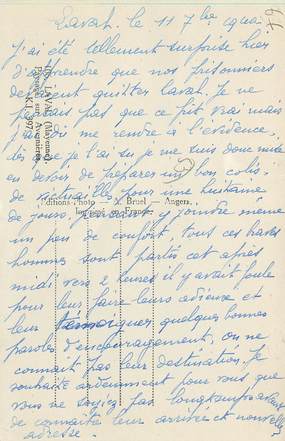 Laval. le 11 7bre
j'ai été tellement surprise hier
d'apprendre que nos prisonniers
devaient quitter Laval. Je ne
pensais pas que ce fut vrai mais
j'ai dû me rendre à l'évidence,
dès que je l'ai su je me suis donc mise
en devoir de préparer un bon colis
de victuailles pour une huitaine
de jours, y joindre même
un peu de confort, tous ces braves
hommes sont partis cet après
midi vers 2 heures il y avait foule
pour leur faire leurs adieux et
leur témoigner quelques bonnes
paroles d'encouragement, on ne
connait pas leur destination. Je
souhaite ardemment pour vous que
vous ne soyiez pas longtemps avant
de connaître leur arrivée et nouvelle
adresse.
LAVAL (Mayenne).
Avesnières
Editions Photo — A. Bruel — Angers
Imprimé en France